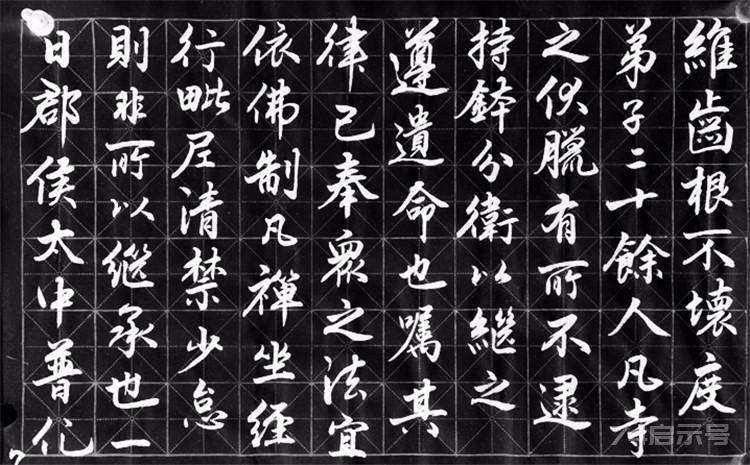 維齒根不壞度
弟子二十餘人凡寺
之伏臘有所不逮
持鉢分衛以繼之
遵遺命也囑其
律己奉眾之法宜
依佛制凡禪坐經
行毗尼清禁少怠
則非所以繼承也一
日郡侯太中普化
启示号